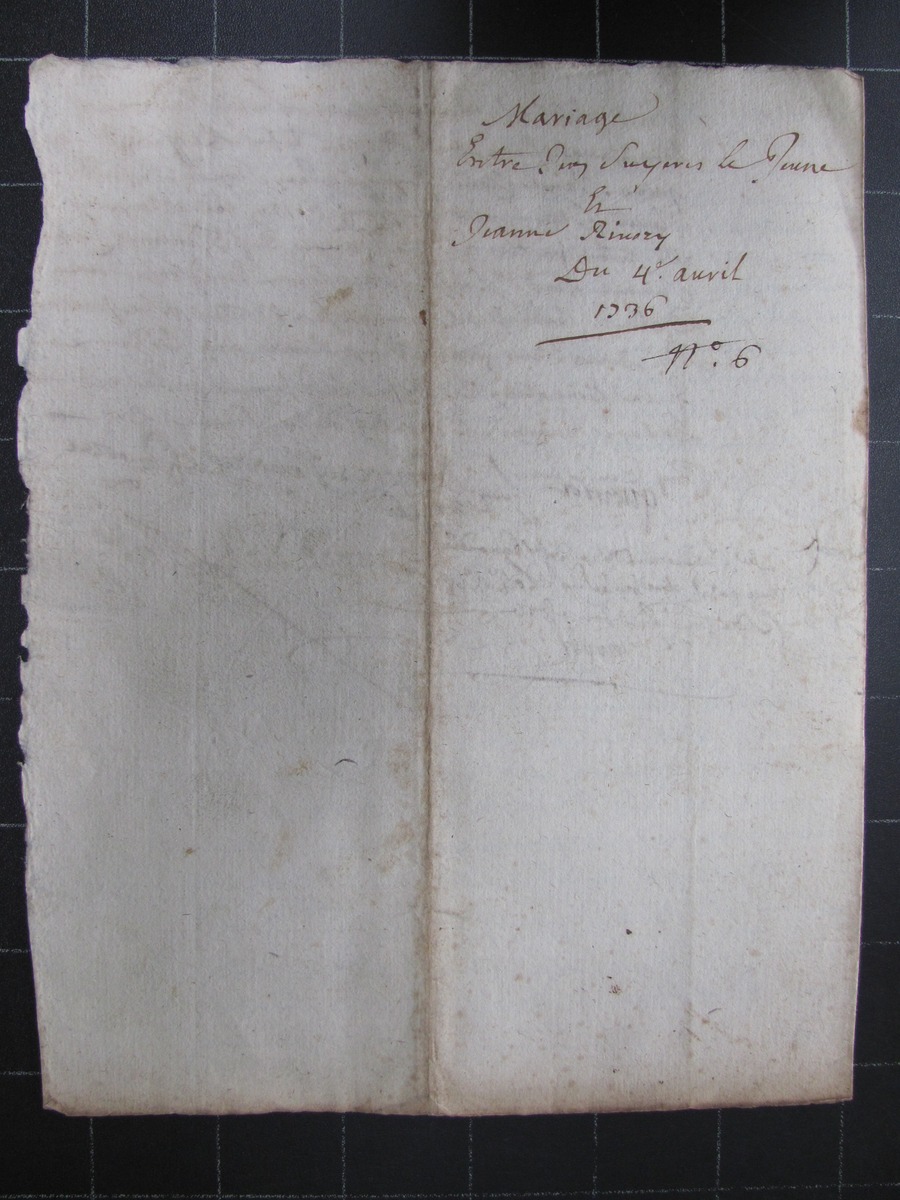 Mariage
Entre Jean Sugeres le Jeune
Et
Jeanne Rivory
Du 4e. avril
1736
No. 6